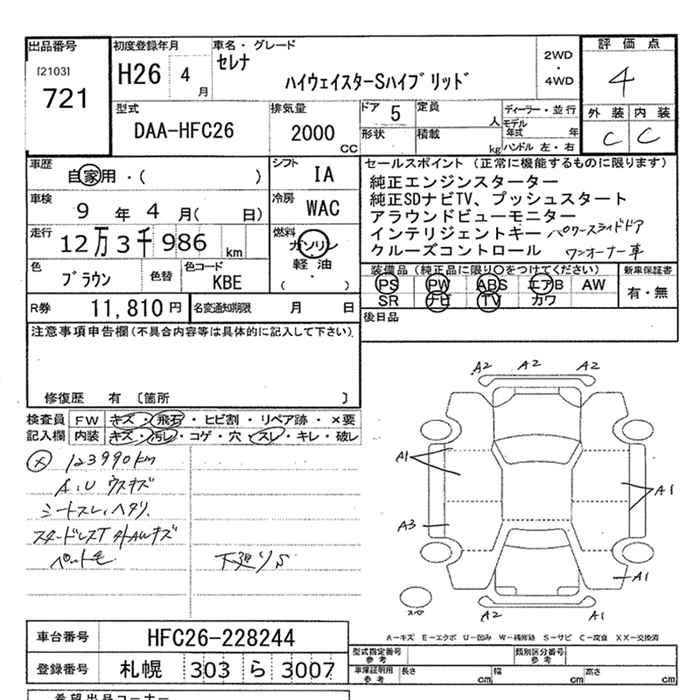 出品番号
[2103]
721
初度登録年月
H26 4 月
車名・グレード
セレナ
ハイウェイスターSハイブリッド
2WD
・
4WD
評価点
4
外装 内装
C C
型式
DAA-HFC26
排気量
2000 CC
ドア 5
定員 人
形状 積載 kg
ディーラー・並行
モデル年式 年
ハンドル 左・右
車歴
自家用・( )
シフト IA
車検
9 年 4 月( 日)
冷房 WAC
走行
12万3千986 km
燃料
ガソリン・
軽油・
( )
色 ブラウン 色替
色コード KBE
R券 11,810 円
名変通知期限 月 日
セールスポイント (正常に機能するものに限ります)
純正エンジンスターター
純正SDナビTV、プッシュスタート
アラウンドビューモニター
インテリジェントキー パワースライドドア
クルーズコントロール ワンオーナー車
装備品(純正品に限り○をつけてください) 新車保証書
PS PW ABS エアB AW
SR ナビ TV カワ
有・無
後日品
注意事項申告欄(不具合内容等は具体的に記入して下さい)
修復歴 有 [箇所 ]
検査員 FW キズ・飛石・ヒビ割・リペア跡・×要
記入欄 内装 キズ・汚レ・コゲ・穴・スレ・キレ・破レ
123990km
A.U ウスキズ
シートスレ、ヘタリ
スタッドレスT 外AWキズ
ペット毛
下廻りS
A2 A2 A2
A1
A1
A3
A1
A2 A1
スペア
A-キズ E-エクボ U-凹み W-補修跡 S-サビ C-腐食 XX-交換済
車台番号 HFC26-228244
登録番号 札幌 303 ら 3007
型式指定番号 参考
類別区分番号 参考
車庫証明用 参考 長さ cm 幅 cm 高さ cm
希望出品コーナー